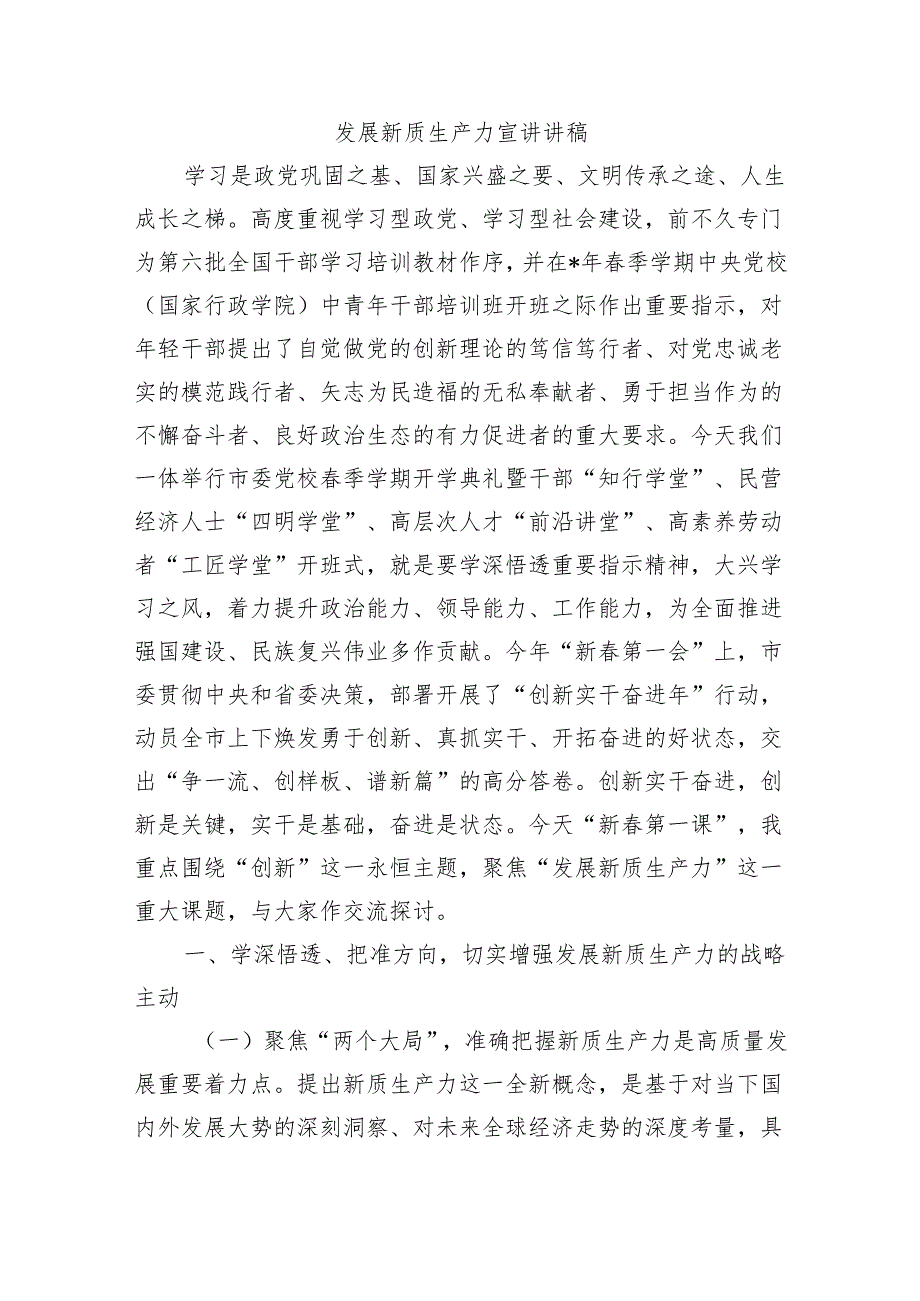 发展新质生产力宣讲讲稿
学习是政党巩固之基、国家兴盛之要、文明传承之途、人生
成长之梯。高度重视学习型政党、学习型社会建设，前不久专门
为第六批全国干部学习培训教材作序，并在*年春季学期中央党校
（国家行政学院）中青年干部培训班开班之际作出重要指示，对
年轻干部提出了自觉做党的创新理论的笃信笃行者、对党忠诚老
实的模范践行者、矢志为民造福的无私奉献者、勇于担当作为的
不懈奋斗者、良好政治生态的有力促进者的重大要求。今天我们
一体举行市委党校春季学期开学典礼暨干部“知行学堂”、民营
经济人士“四明学堂”、高层次人才“前沿讲堂”、高素养劳动
者“工匠学堂”开班式，就是要学深悟透重要指示精神，大兴学
习之风，着力提升政治能力、领导能力、工作能力，为全面推进
强国建设、民族复兴伟业多作贡献。今年“新春第一会”上，市
委贯彻中央和省委决策，部署开展了“创新实干奋进年”行动，
动员全市上下焕发勇于创新、真抓实干、开拓奋进的好状态，交
出“争一流、创样板、谱新篇”的高分答卷。创新实干奋进，创
新是关键，实干是基础，奋进是状态。今天“新春第一课”，我
重点围绕“创新”这一永恒主题，聚焦“发展新质生产力”这一
重大课题，与大家作交流探讨。
一、学深悟透、把准方向，切实增强发展新质生产力的战略
主动
（一）聚焦“两个大局”，准确把握新质生产力是高质量发
展重要着力点。提出新质生产力这一全新概念，是基于对当下国
内外发展大势的深刻洞察、对未来全球经济走势的深度考量，具